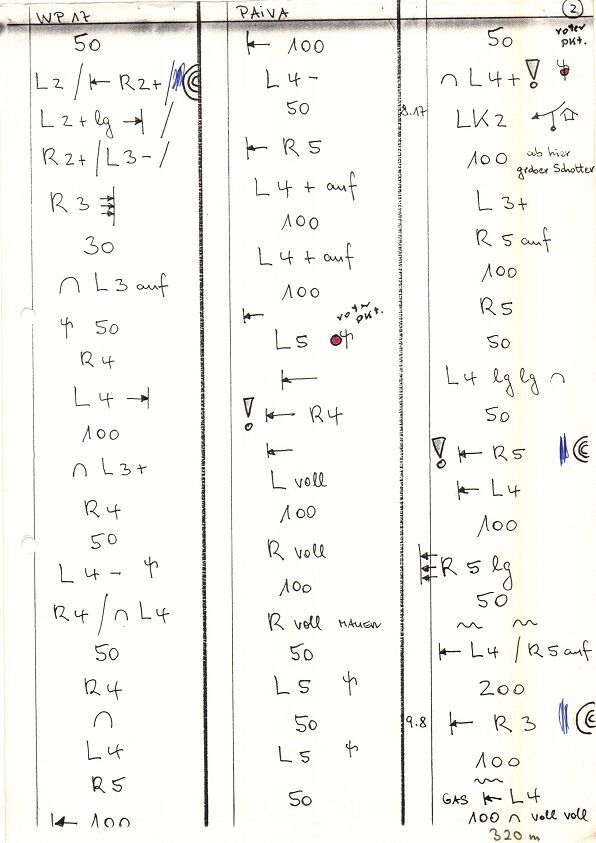 WP 17
50
L2 / R2+ /
L2+lg /
R2+ / L3- /
R3
30
∩ L3 auf
50
R4
L4
100
∩ L3+
R4
50
L4-
R4 / ∩ L4
50
R4
∩
L4
R5
100
PAIVA
100
L4-
50
R5
L4+ auf
100
L4+ auf
100
roter
pkt.
L5
! R4
L voll
100
R voll
100
R voll MAUER
50
L5
50
L5
50
2
50 roter
pkt.
∩ L4+ !
LK2
100 ab hier
grober Schotter
L3+
R5 auf
100
R5
50
L4 lg lg ∩
50
! R5
L4
100
R5 lg
50
L4 / R5 auf
200
9.8 R3
100
GAS L4
100 ∩ voll voll
320 m